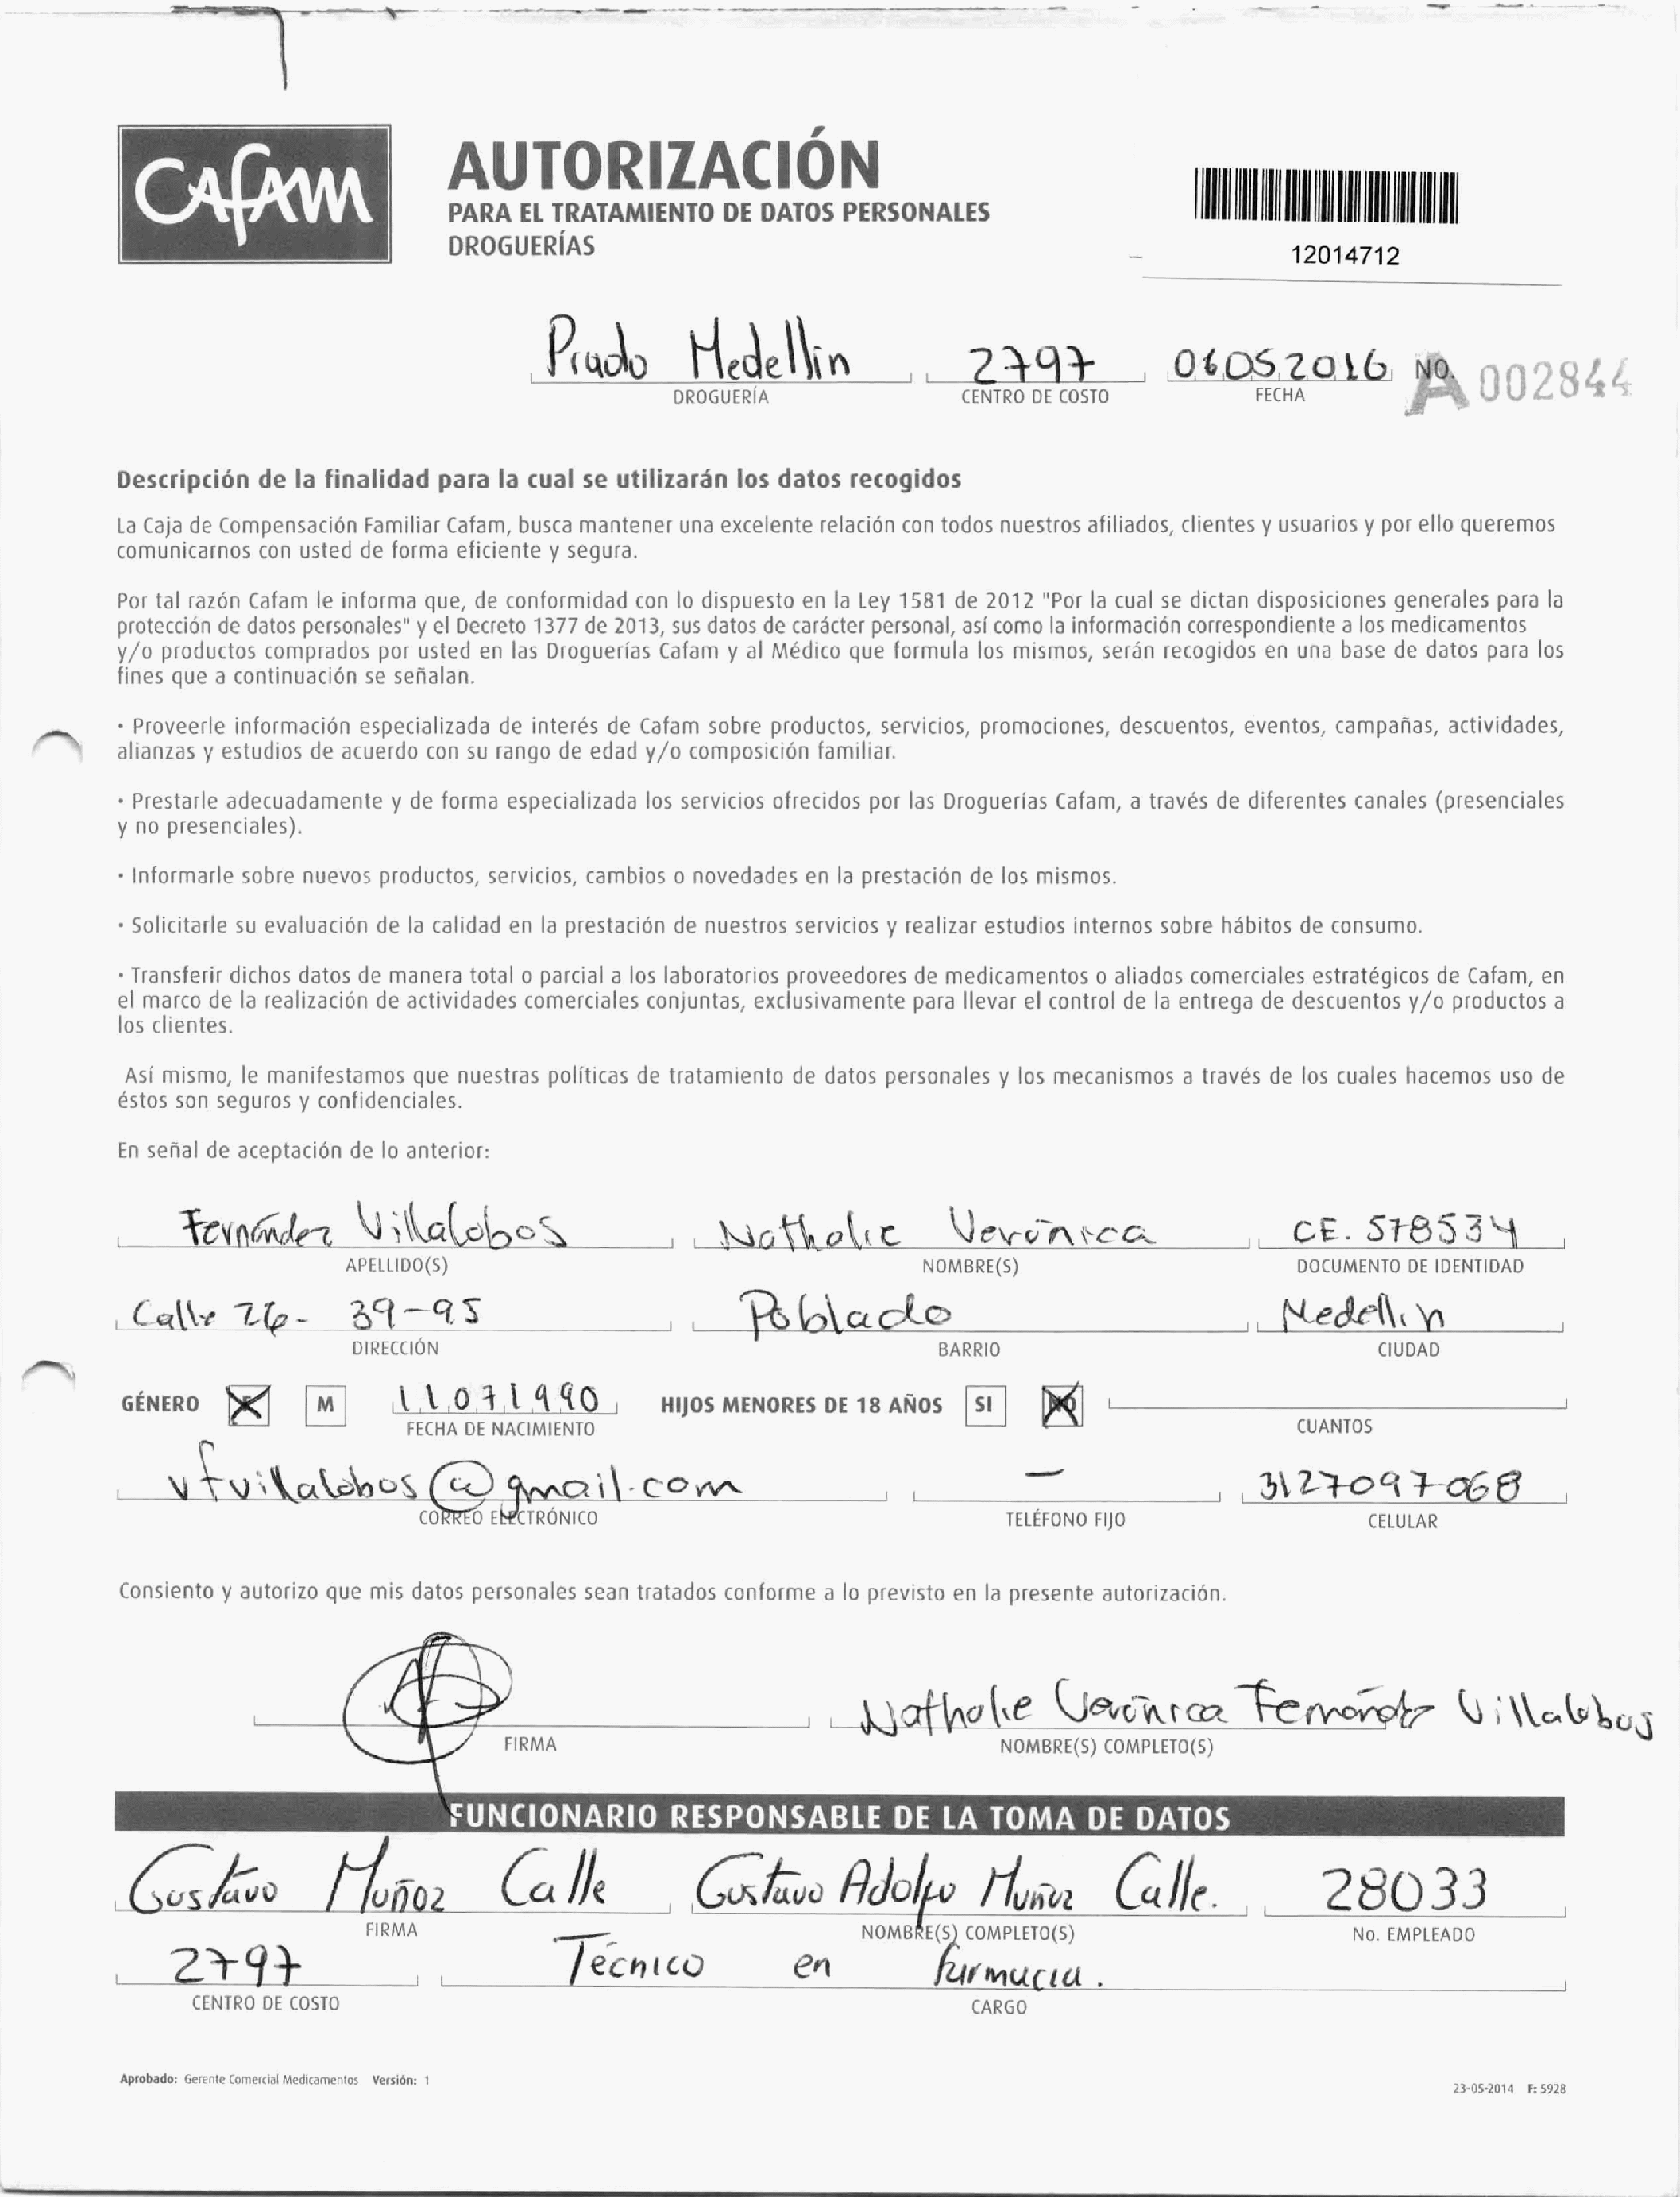 CAFAM
AUTORIZACIÓN
PARA EL TRATAMIENTO DE DATOS PERSONALES
DROGUERÍAS
12014712
Prado Medellin 2797 06052016 NO. A 002844
DROGUERÍA CENTRO DE COSTO FECHA
Descripción de la finalidad para la cual se utilizarán los datos recogidos
La Caja de Compensación Familiar Cafam, busca mantener una excelente relación con todos nuestros afiliados, clientes y usuarios y por ello queremos
comunicarnos con usted de forma eficiente y segura.
Por tal razón Cafam le informa que, de conformidad con lo dispuesto en la Ley 1581 de 2012 "Por la cual se dictan disposiciones generales para la
protección de datos personales" y el Decreto 1377 de 2013, sus datos de carácter personal, así como la información correspondiente a los medicamentos
y/o productos comprados por usted en las Droguerías Cafam y al Médico que formula los mismos, serán recogidos en una base de datos para los
fines que a continuación se señalan.
· Proveerle información especializada de interés de Cafam sobre productos, servicios, promociones, descuentos, eventos, campañas, actividades,
alianzas y estudios de acuerdo con su rango de edad y/o composición familiar.
· Prestarle adecuadamente y de forma especializada los servicios ofrecidos por las Droguerías Cafam, a través de diferentes canales (presenciales
y no presenciales).
· Informarle sobre nuevos productos, servicios, cambios o novedades en la prestación de los mismos.
· Solicitarle su evaluación de la calidad en la prestación de nuestros servicios y realizar estudios internos sobre hábitos de consumo.
· Transferir dichos datos de manera total o parcial a los laboratorios proveedores de medicamentos o aliados comerciales estratégicos de Cafam, en
el marco de la realización de actividades comerciales conjuntas, exclusivamente para llevar el control de la entrega de descuentos y/o productos a
los clientes.
Así mismo, le manifestamos que nuestras políticas de tratamiento de datos personales y los mecanismos a través de los cuales hacemos uso de
éstos son seguros y confidenciales.
En señal de aceptación de lo anterior:
Fernández Villalobos Nathalie Verónica CE. 578534
APELLIDO(S) NOMBRE(S) DOCUMENTO DE IDENTIDAD
Calle 26- 39-95 Poblado Medellin
DIRECCIÓN BARRIO CIUDAD
GÉNERO M 11071990 HIJOS MENORES DE 18 AÑOS SI NO
FECHA DE NACIMIENTO CUANTOS
vfvillalobos@gmail.com - 3127097068
CORREO ELECTRÓNICO TELÉFONO FIJO CELULAR
Consiento y autorizo que mis datos personales sean tratados conforme a lo previsto en la presente autorización.
Nathalie Verónica Fernández Villalobos
FIRMA NOMBRE(S) COMPLETO(S)
FUNCIONARIO RESPONSABLE DE LA TOMA DE DATOS
Gustavo Muñoz Calle Gustavo Adolfo Muñoz Calle. 28033
FIRMA NOMBRE(S) COMPLETO(S) No. EMPLEADO
2797 Técnico en farmacia.
CENTRO DE COSTO CARGO
Aprobado: Gerente Comercial Medicamentos Versión: 1
23-05-2014 F: 5928